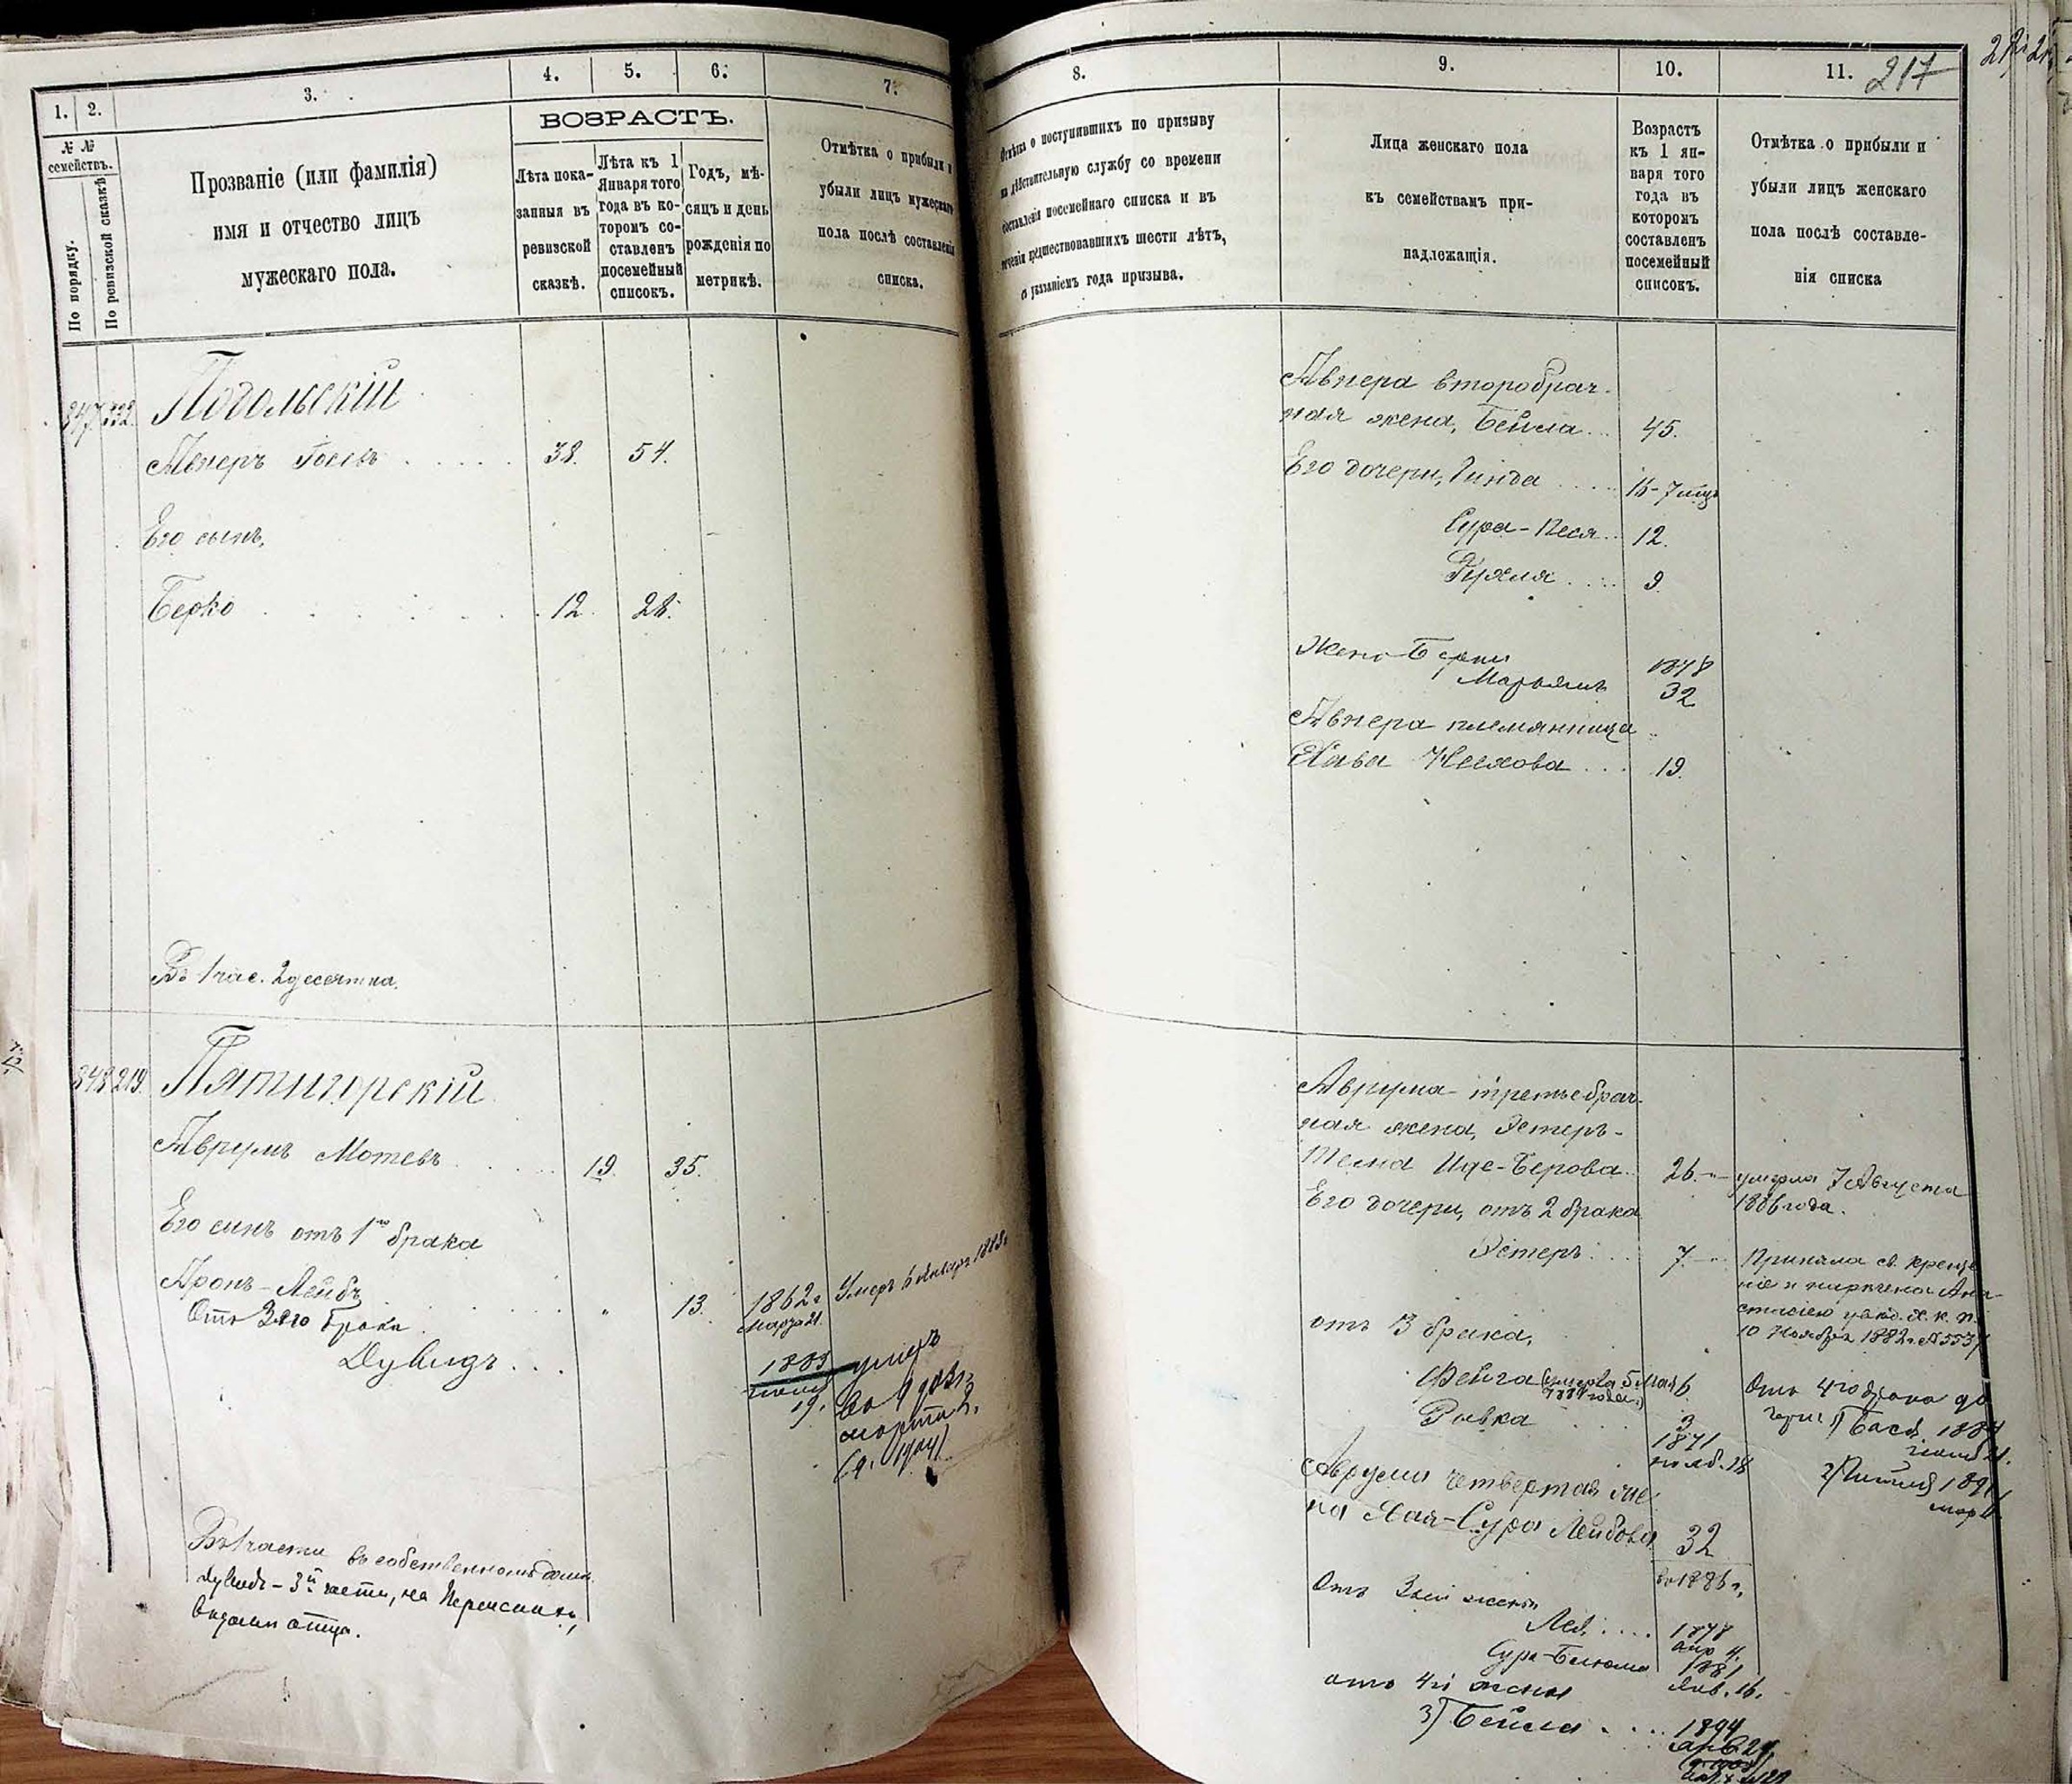 1.
2.
3.
4.
5.
6.
7.
№ №
семействъ.
По порядку.
По ревизской сказкѣ
Прозваніе (или фамилія)
имя и отчество лицъ
мужескаго пола.
ВОЗРАСТЪ.
Лѣта пока-
занныя въ
ревизской
сказкѣ.
Лѣта къ 1
Января того
года въ ко-
торомъ со-
ставленъ
посемейный
списокъ.
Годъ, мѣ-
сяцъ и день
рожденія по
метрикѣ.
Отмѣтка о прибыли и
убыли лицъ мужескаго
пола послѣ составленія
списка.
347. 332. Подольскій
Авнеръ Іосевъ 38. 54.
Его сынъ,
Берко 12. 28.
Въ 1 час. 2 десятка.
348 219. Пятигорскій
Аврумъ Мотевъ 19. 35.
Его сынъ отъ 1го брака
Аронъ-Лейбъ 13. 1862 г Умеръ 6 Января 1883г
марта 21.
Отъ 3го брака
Дувидъ 1885 умеръ
19. въ 1903г.
марта 2.
Въ 1 части въ собственномъ домѣ.
Дувидъ - 3й части, на Пересыпи,
въ домѣ отца.
8.
9.
10.
11.
217
Отмѣтка о поступившихъ по призыву
на дѣйствительную службу со времени
составленія посемейнаго списка и въ
теченіи предшествовавшихъ шести лѣтъ,
съ указаніемъ года призыва.
Лица женскаго пола
къ семействамъ при-
надлежащія.
Возрастъ
къ 1 ян-
варя того
года въ
которомъ
составленъ
посемейный
списокъ.
Отмѣтка о прибыли и
убыли лицъ женскаго
пола послѣ составле-
нія списка
Авнера второбрач-
ная жена, Бейла 45.
Его дочери, Гинда
Сура-Песя 12.
9.
Жена Берки 1848
Марьямъ 32
Авнера племянница
Хава 19.
Аврума третьебрач-
ная жена, Эстеръ-
Иде-Берова 26. умерла 7 Августа
1886 года.
Его дочери, отъ 2 брака
Эстеръ 7. Приняла св. креще-
ніе и наречена Ана-
стасіею
10 Ноября 1882 г. № 5537
отъ 3 брака,
Фейга (умерла 5 мая 6.
Ривка 3
Отъ 4го брака до-
чери 1) Бася 1884
1871
нояб. 18
Аврума четвертая же-
на Хая-Сура Лейбова 32
въ 1886 г.
Отъ 3ей жены
Лея 1878
апр 4.
Сура- 1881
Янв. 16.
отъ 4й жены
3) Бейла 1894